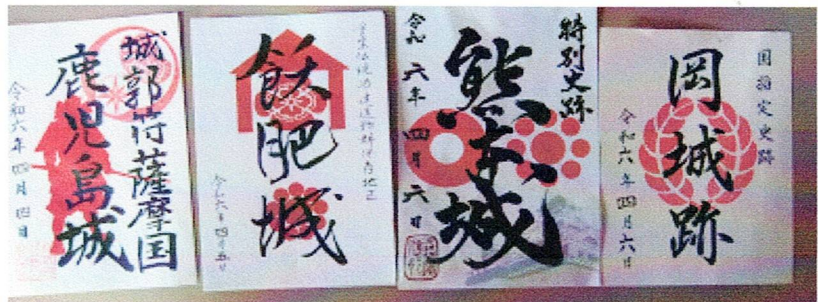 城郭符薩摩国
鹿児島城
令和六年四月四日
重要伝統的建造物群保存地区
飫肥城
令和六年四月五日
特別史跡
熊本城
令和六年四月六日
国指定史跡
岡城跡
令和六年四月六日